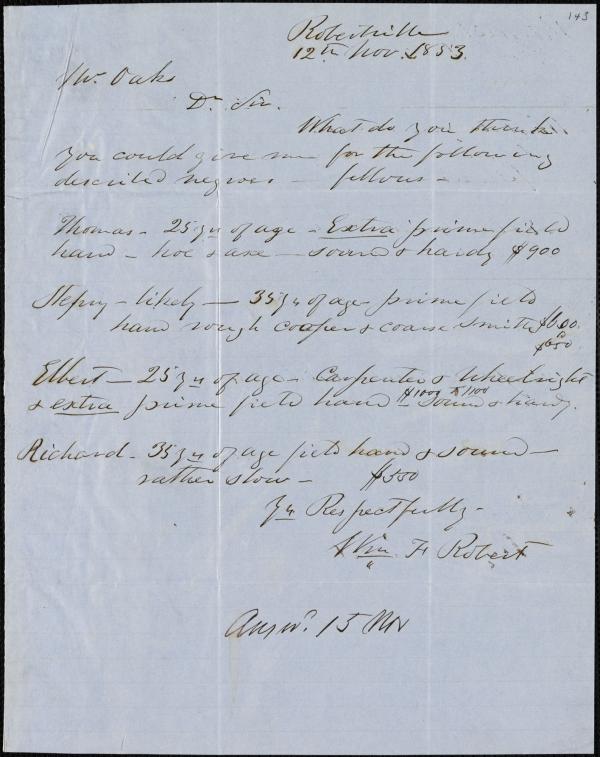 143
Robertville
12th Nov. 1853.
Mr. Oaks
Dr. Sir.
What do you think
you could give me for the following
described negroes - fellows -
Thomas - 25 yrs of age - Extra prime field
hand - hoe & axe - sound & hardy $900
- likely - 35 yrs of age prime field
hand rough cooper & coarse smith $600.
to
$650
Elbert - 25 yrs of age - Carpenter & Wheelright
$1000 to 1100
& extra prime field hand - sound & hardy.
Richard - 35 yrs of age field hand & sound -
rather slow - $550
Yrs Respectfully -
Wm F Robert
Answd. 15 Nov